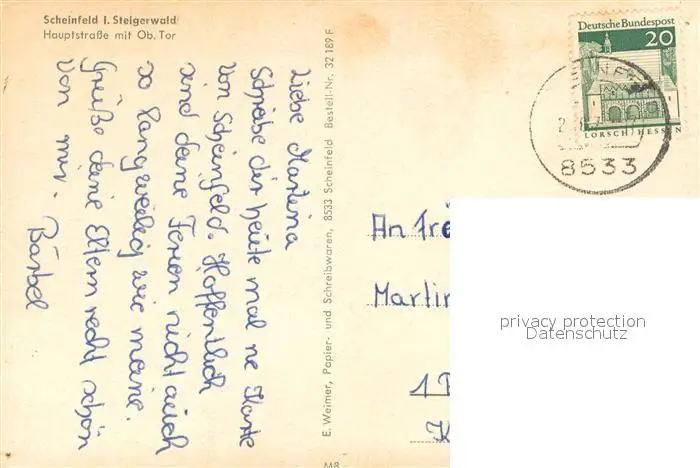 Scheinfeld i. Steigerwald
Hauptstraße mit Ob. Tor
Liebe Martina
Schreibe dir heute mal ne Karte
von Scheinfeld. Hoffentlich
sind deine Ferien nicht auch
so langweilig wie meine.
Grüße deine Eltern recht schön
von mir.
Bärbel
E. Weimer, Papier- und Schreibwaren, 8533 Scheinfeld Bestell-Nr. 32 189 F
M8
Deutsche Bundespost
20
LORSCH/HESSEN
8533
An Frl
Martin
1
privacy protection
Datenschutz